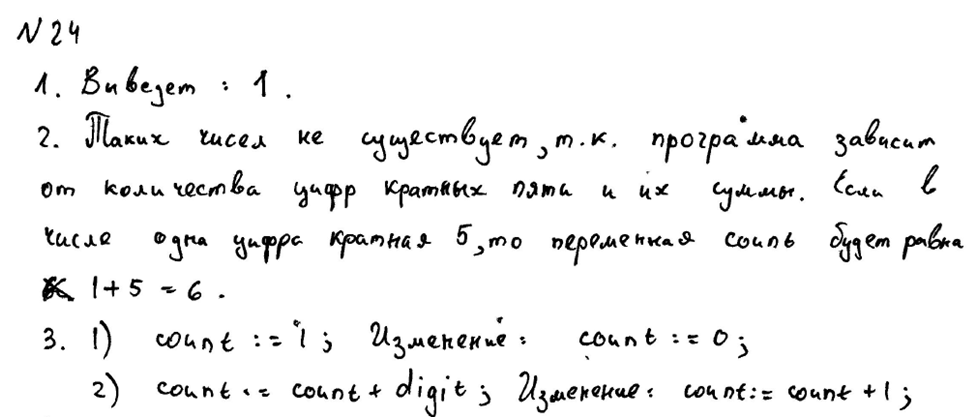 N 24
1. Виведет : 1.
2. Таких чисел не существует, т.к. программа зависит
от количества цифр кратных пяти и их суммы. Если в
числе одна цифра кратная 5, то переменная count будет равна
1+5 = 6.
3. 1) count := 1; Изменение: count := 0;
2) count := count + digit; Изменение: count := count + 1;